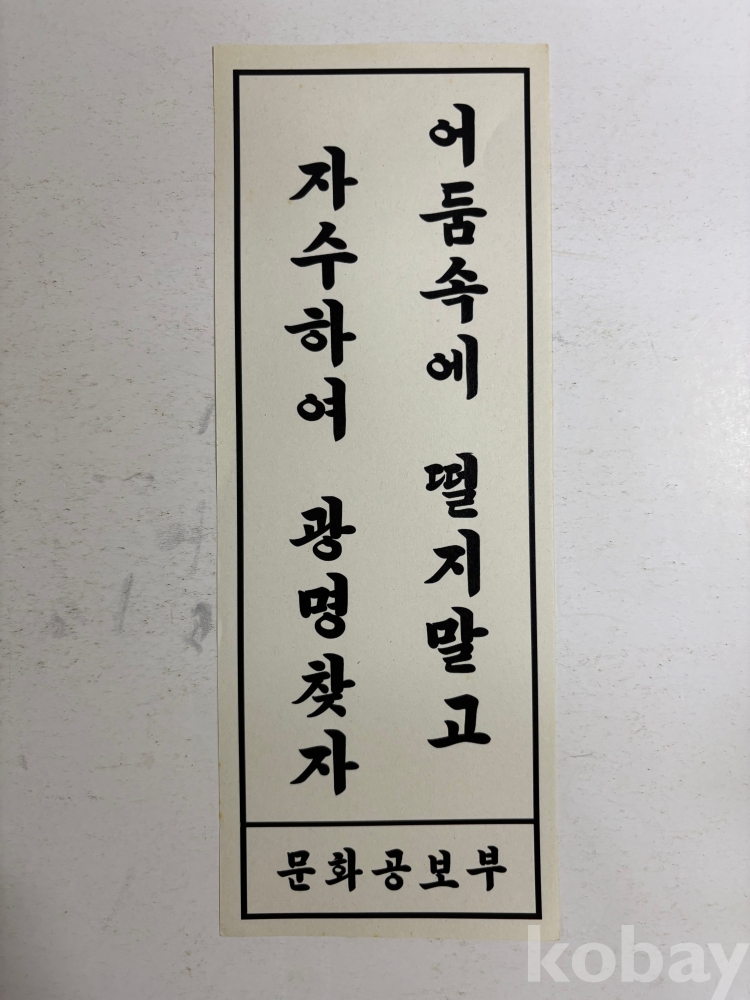 어둠속에 떨지말고
자수하여 광명찾자
문화공보부
kobay